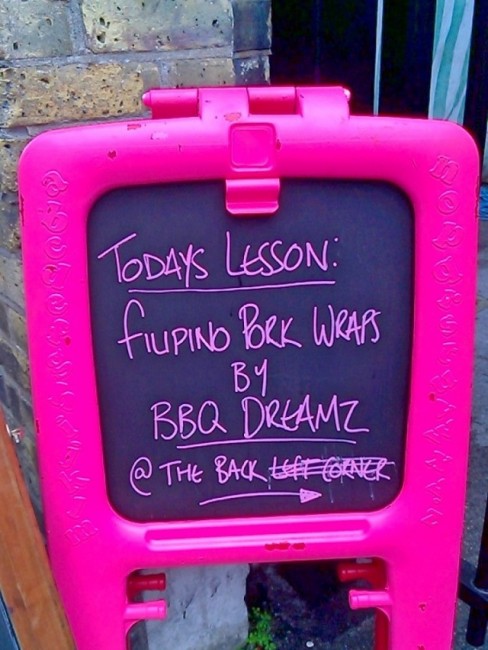 TODAYS LESSON:
FILIPINO PORK WRAPS
BY
BBQ DREAMZ
@ THE BACK LEFT CORNER